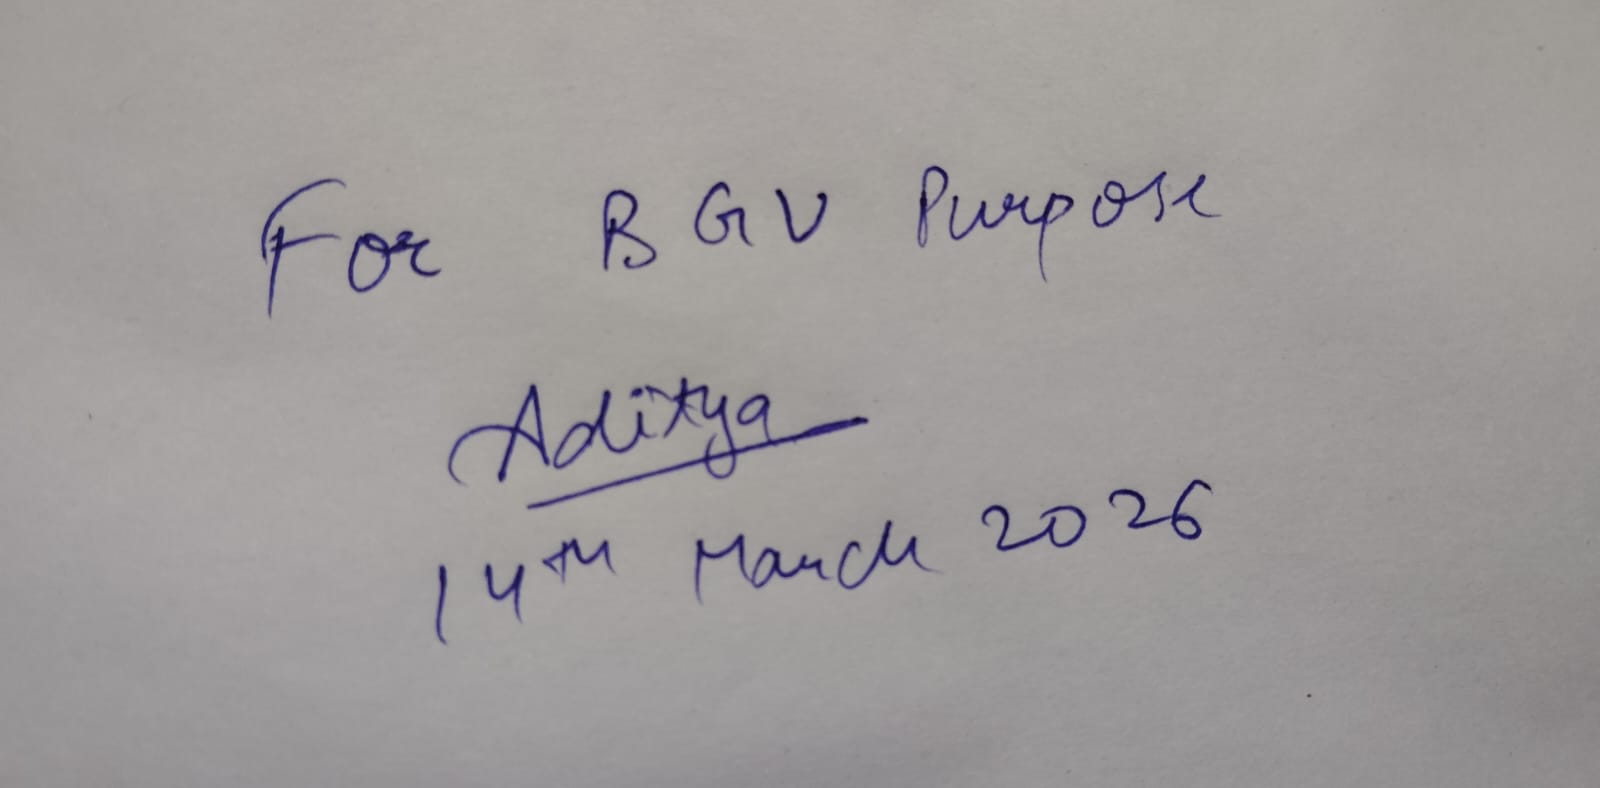 For BGV Purpose
Aditya
14TH March 2026